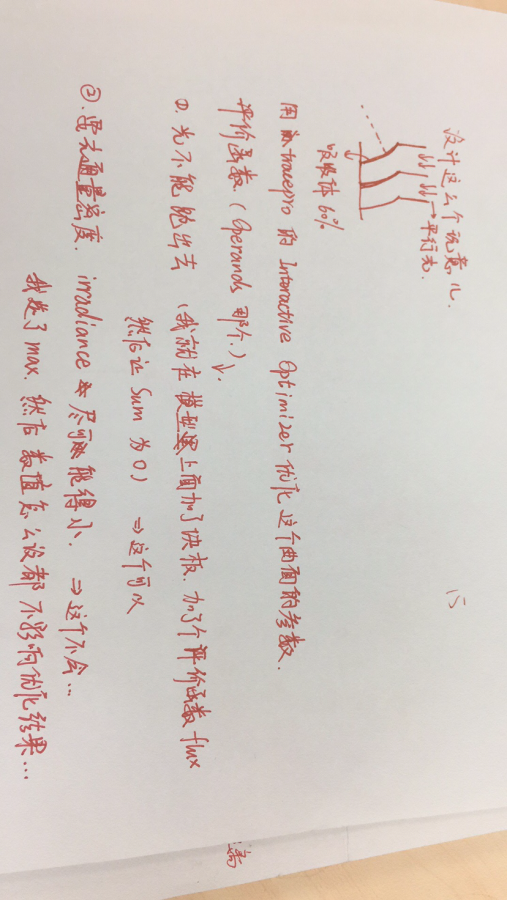 设计这么个玩意儿.
平行光.
吸收体 60%
用 tracepro 的 Interactive Optimizer 优化这个曲面的参数.
评价函数 (Operands 那个.) ↓.
①. 光不能跑出去 (我就在模型上面加了块板. 加了个评价函数 flux
然后让 Sum 为 0) ⇒ 这个可以
②. 最大通量密度. irradiance 尽可能得小. ⇒ 这个不会...
我选了 max. 然后数值怎么设都不影响优化结果...